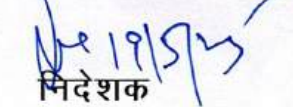 19/5/25
निदेशक